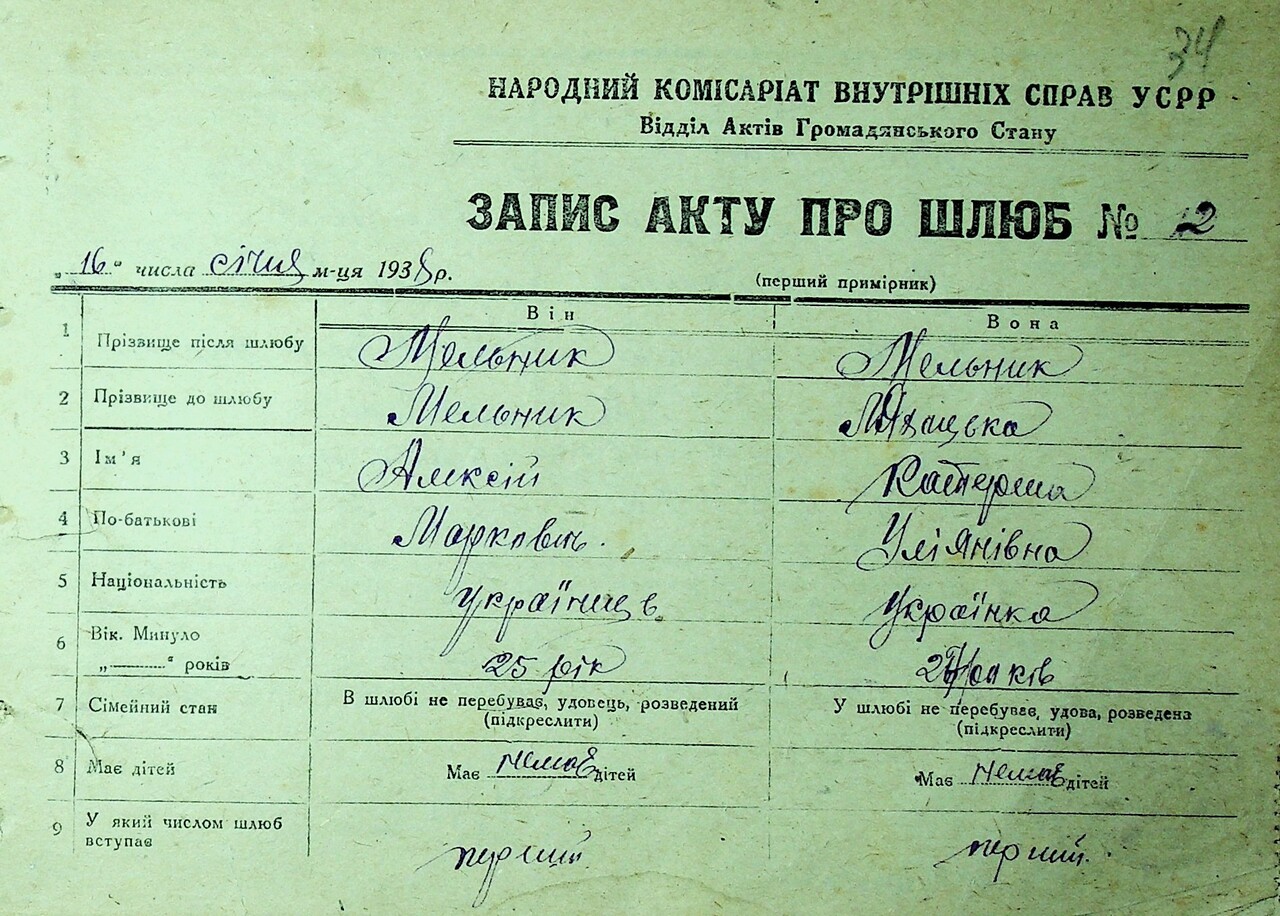 34
НАРОДНИЙ КОМІСАРІАТ ВНУТРІШНІХ СПРАВ УСРР
Відділ Актів Громадянського Стану
ЗАПИС АКТУ ПРО ШЛЮБ № 12
„16“ числа січня м-ця 1938 р. (перший примірник)
Він Вона
1 Прізвище після шлюбу Мельник Мельник
2 Прізвище до шлюбу Мельник
3 Ім'я Алексій Катерина
4 По-батькові Маркович. Уліянівна
5 Національність Українець Українка
6 Вік. Минуло
„—“ років 25 рік 24 років
7 Сімейний стан В шлюбі не перебуває, удовець, розведений У шлюбі не перебуває, удова, розведена
(підкреслити) (підкреслити)
8 Має дітей Має немає дітей Має немає дітей
9 У який числом шлюб
вступає перший перший.